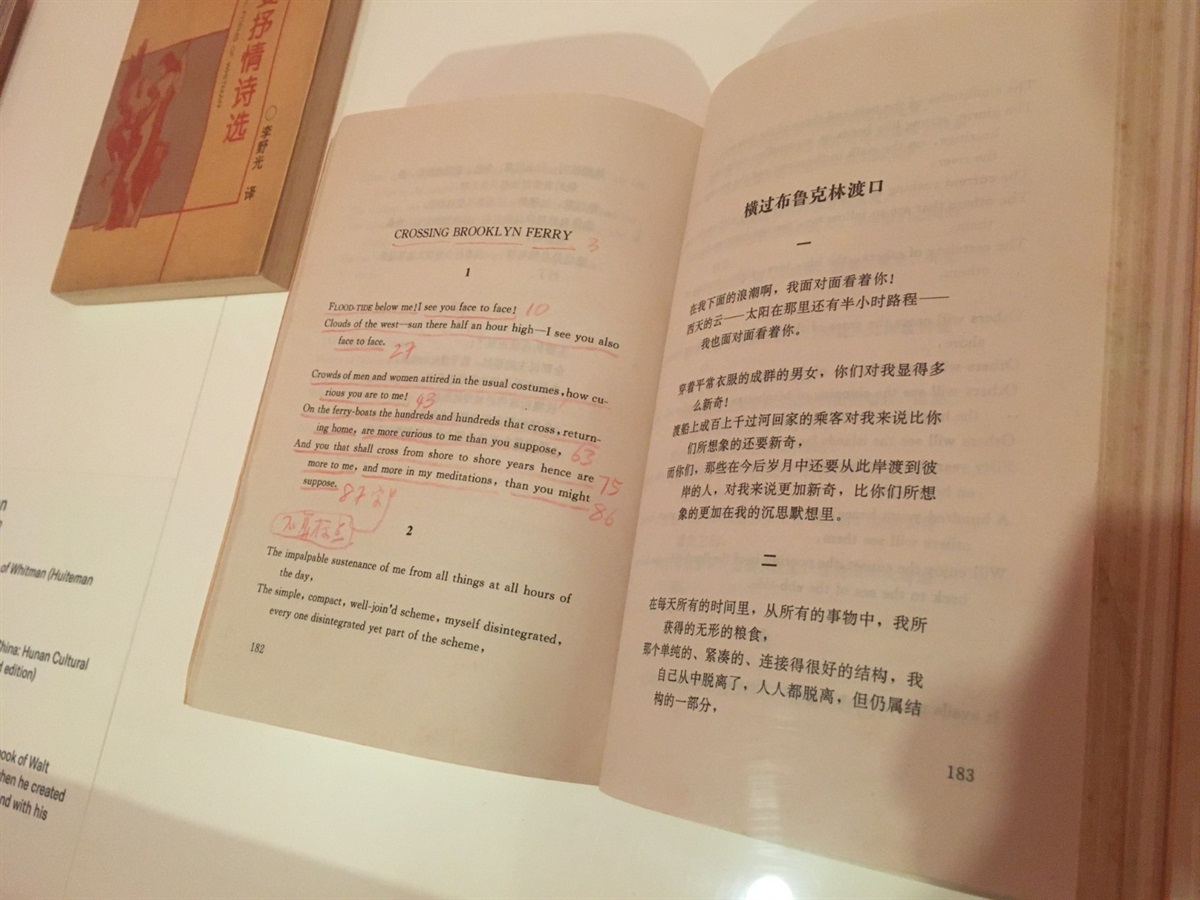 抒情诗选
李野光 译
n
of Whitman (Huiteman
China: Hunan Cultural
d edition)
book of Walt
when he created
nd with his
CROSSING BROOKLYN FERRY 3
1
FLOOD-TIDE below me! I see you face to face! 10
Clouds of the west—sun there half an hour high—I see you also
face to face. 27
Crowds of men and women attired in the usual costumes, how cu-
rious you are to me! 43
On the ferry-boats the hundreds and hundreds that cross, return-
ing home, are more curious to me than you suppose, 63
And you that shall cross from shore to shore years hence are 75
more to me, and more in my meditations, than you might 86
suppose. 87字
不算标点
2
The impalpable sustenance of me from all things at all hours of
the day,
The simple, compact, well-join'd scheme, myself disintegrated,
every one disintegrated yet part of the scheme,
182
横过布鲁克林渡口
一
在我下面的浪潮啊，我面对面看着你！
西天的云——太阳在那里还有半小时路程——
我也面对面看着你。
穿着平常衣服的成群的男女，你们对我显得多
么新奇！
渡船上成百上千过河回家的乘客对我来说比你
们所想象的还要新奇，
而你们，那些在今后岁月中还要从此岸渡到彼
岸的人，对我来说更加新奇，比你们所想
象的更加在我的沉思默想里。
二
在每天所有的时间里，从所有的事物中，我所
获得的无形的粮食，
那个单纯的、紧凑的、连接得很好的结构，我
自己从中脱离了，人人都脱离，但仍属结
构的一部分，
183